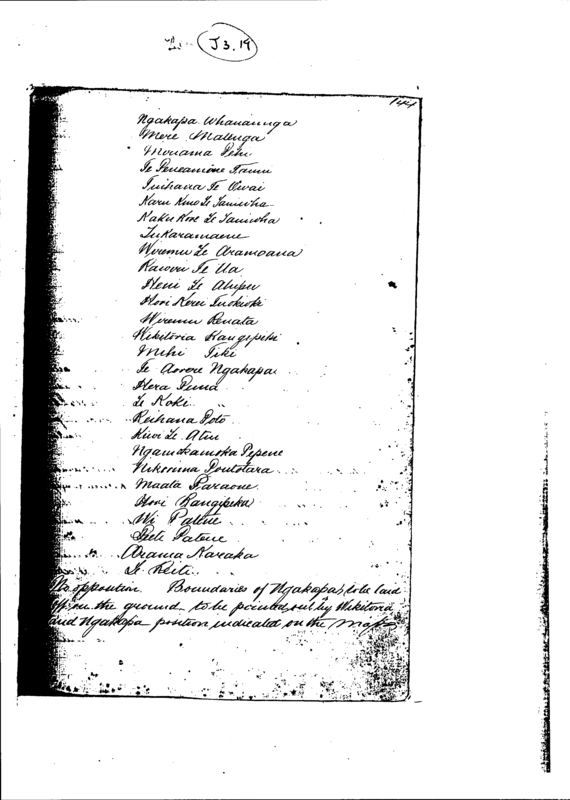 J3.19
144
Ngakapa Whanaunga
Mere Matenga
Mouama
Te Peneamine Tanui
Tuihana Te
Karu Kino Te Taniwha
Te Taniwha
Tukaramaene
Wiremu Te Aramoana
Raiovi Te Ua
Heni Te
Hori Kerei Tuokioki
Wiremu Renata
Wikitoria Rangipiki
Mihi Tiki
Te Aorere Ngakapa
Hera Puna
Te Koki
Reihana Poto
Kiwi Te Atiu
Ngamokamoka Pepene
Nikorima Poutotara
Maata Paraone
Hori Rangipeka
Wi Patene
Pita Patene
Arama Karaka
Te Reiti
No opposition. Boundaries of Ngakapa's to be laid
off on the ground to be pointed out by Wikitoria
and Ngakapa position indicated on the map